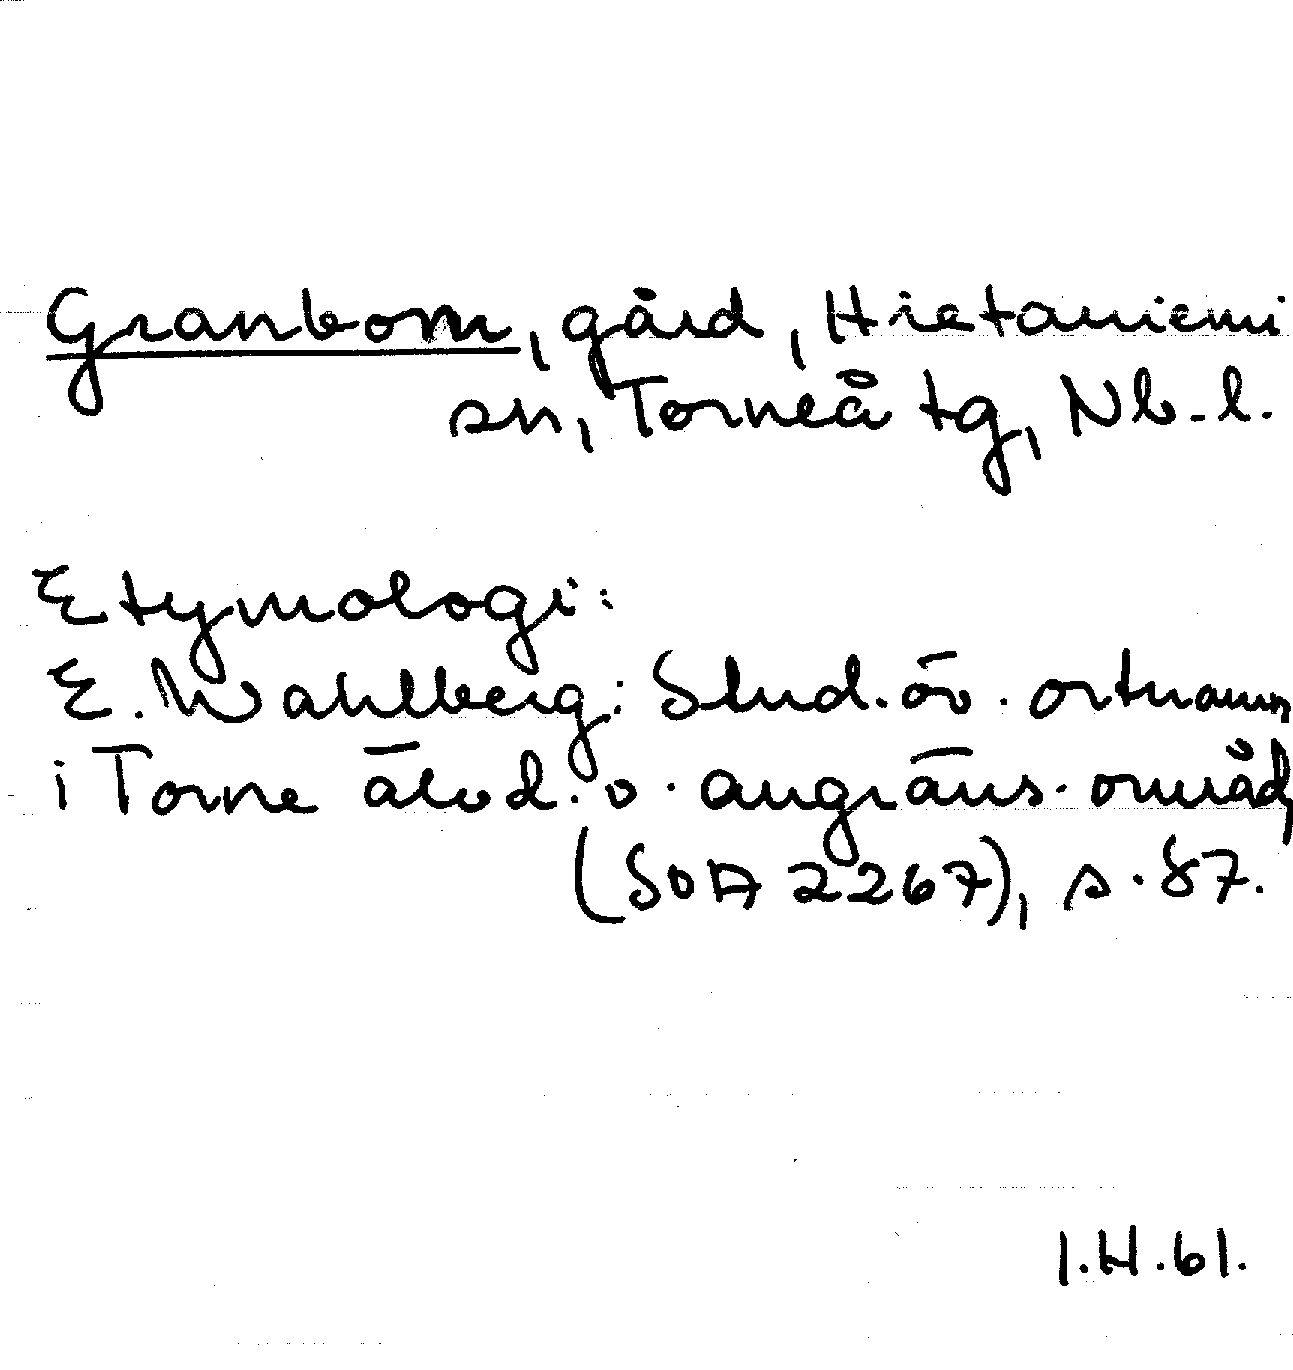 Granbom, gård, Hietaniemi
sn, Torneå tg, Nb. l.
Etymologi:
E. Wahlberg: Stud. öv. ortnamn
i Torne älvd. o. angräns. områd,
(SOA 2267), s. 87.
I.H.61.